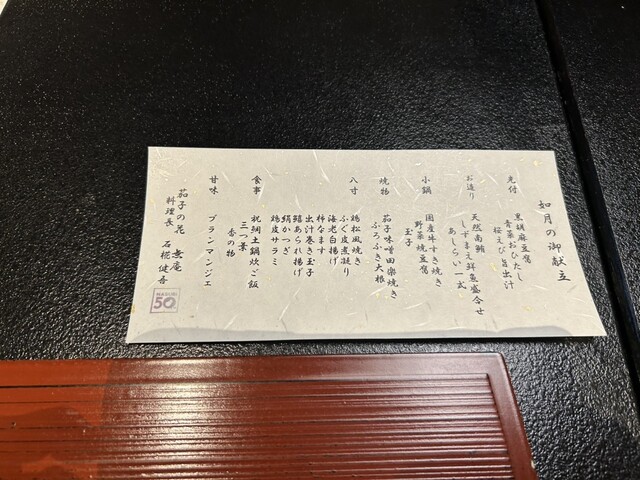 如月の御献立
先付
黒胡麻豆腐
青菜おひたし
桜えび旨出汁
お造り
天然南鮪
しずまえ鮮魚盛合せ
あしらい一式
小鍋
国産牛すき焼き
野菜 焼豆腐
玉子
焼物
茄子味噌田楽焼き
ふろふき大根
八寸
鶏松風焼き
ふぐ皮煮凝り
海老白揚げ
出汁巻き玉子
柿なます
鱚あられ揚げ
絹かつぎ
鶏皮サラミ
食事
祝鯛土鍋炊ご飯
三つ葉
香の物
甘味
ブランマンジェ
茄子の花 無庵
料理長 石橿健吾
50